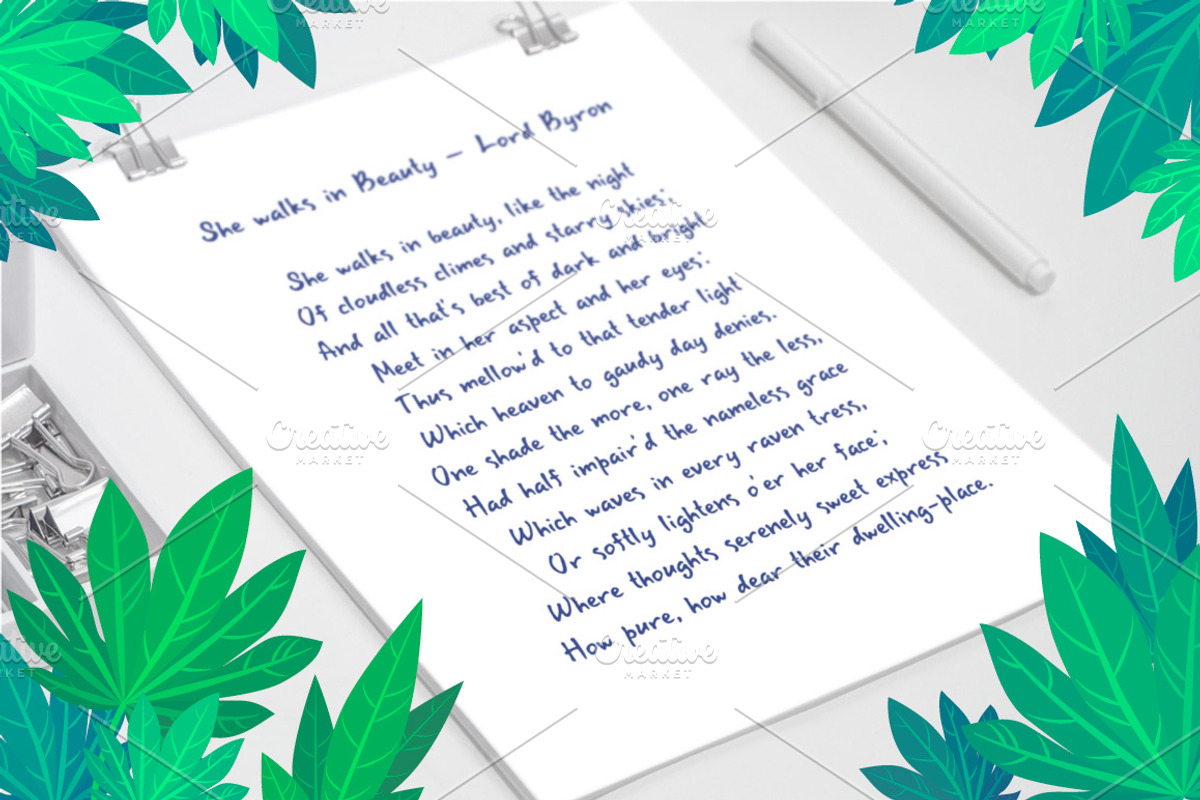 She walks in Beauty – Lord Byron
She walks in beauty, like the night
Of cloudless climes and starry skies;
And all that's best of dark and bright
Meet in her aspect and her eyes:
Thus mellow'd to that tender light
Which heaven to gaudy day denies.
One shade the more, one ray the less,
Had half impair'd the nameless grace
Which waves in every raven tress,
Or softly lightens o'er her face;
Where thoughts serenely sweet express
How pure, how dear their dwelling-place.
Creative MARKET
Creative MARKET
Creative MARKET
Creative MARKET
Creative MARKET
Creative MARKET